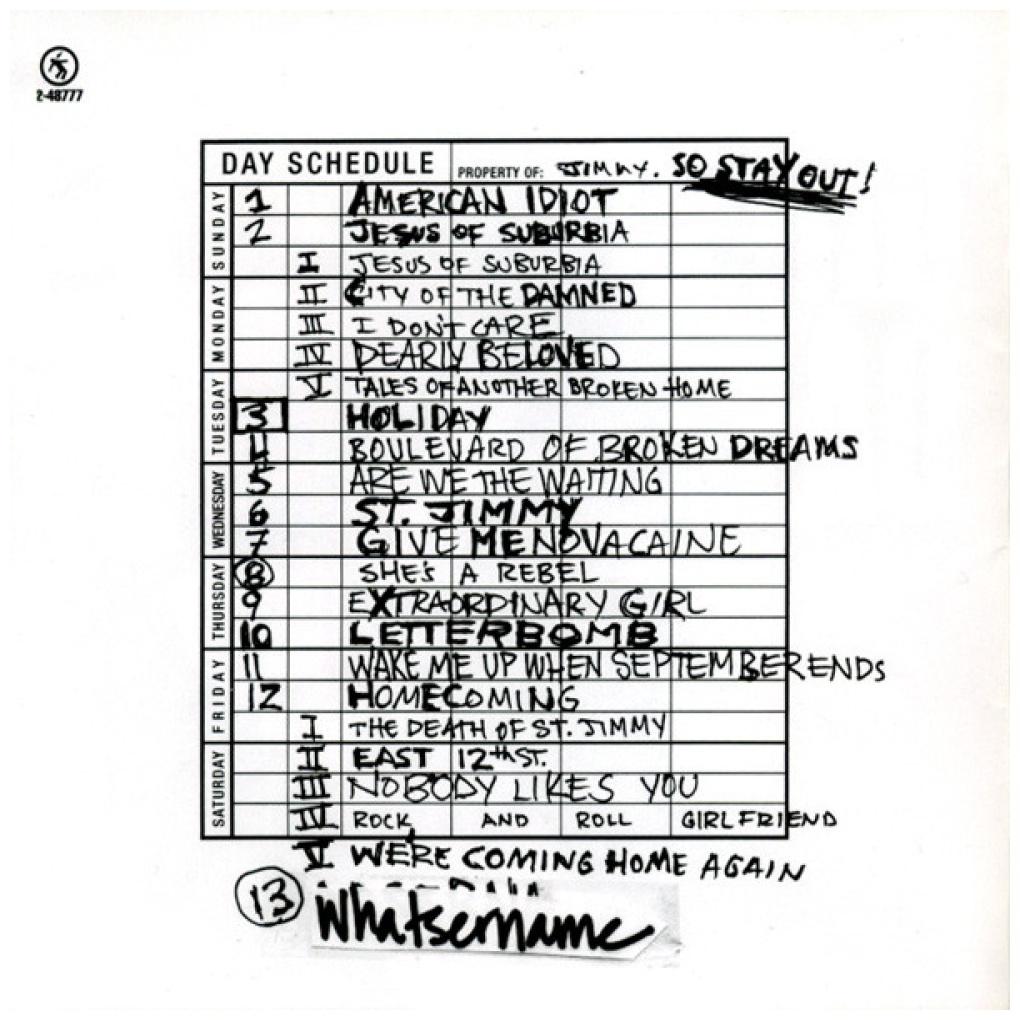 2-48777
DAY SCHEDULE PROPERTY OF: JIMMY. SO STAY OUT!
SUNDAY
1 AMERICAN IDIOT
2 JESUS OF SUBURBIA
I JESUS OF SUBURBIA
MONDAY
II CITY OF THE DAMNED
III I DON'T CARE
IV DEARLY BELOVED
TUESDAY
V TALES OF ANOTHER BROKEN HOME
3 HOLIDAY
4 BOULEVARD OF BROKEN DREAMS
WEDNESDAY
5 ARE WE THE WAITING
6 ST. JIMMY
7 GIVE ME NOVACAINE
THURSDAY
8 SHE'S A REBEL
9 EXTRAORDINARY GIRL
10 LETTERBOMB
FRIDAY
11 WAKE ME UP WHEN SEPTEMBER ENDS
12 HOMECOMING
I THE DEATH OF ST. JIMMY
SATURDAY
II EAST 12th ST.
III NOBODY LIKES YOU
IV ROCK AND ROLL GIRLFRIEND
V WE'RE COMING HOME AGAIN
13 Whatsername